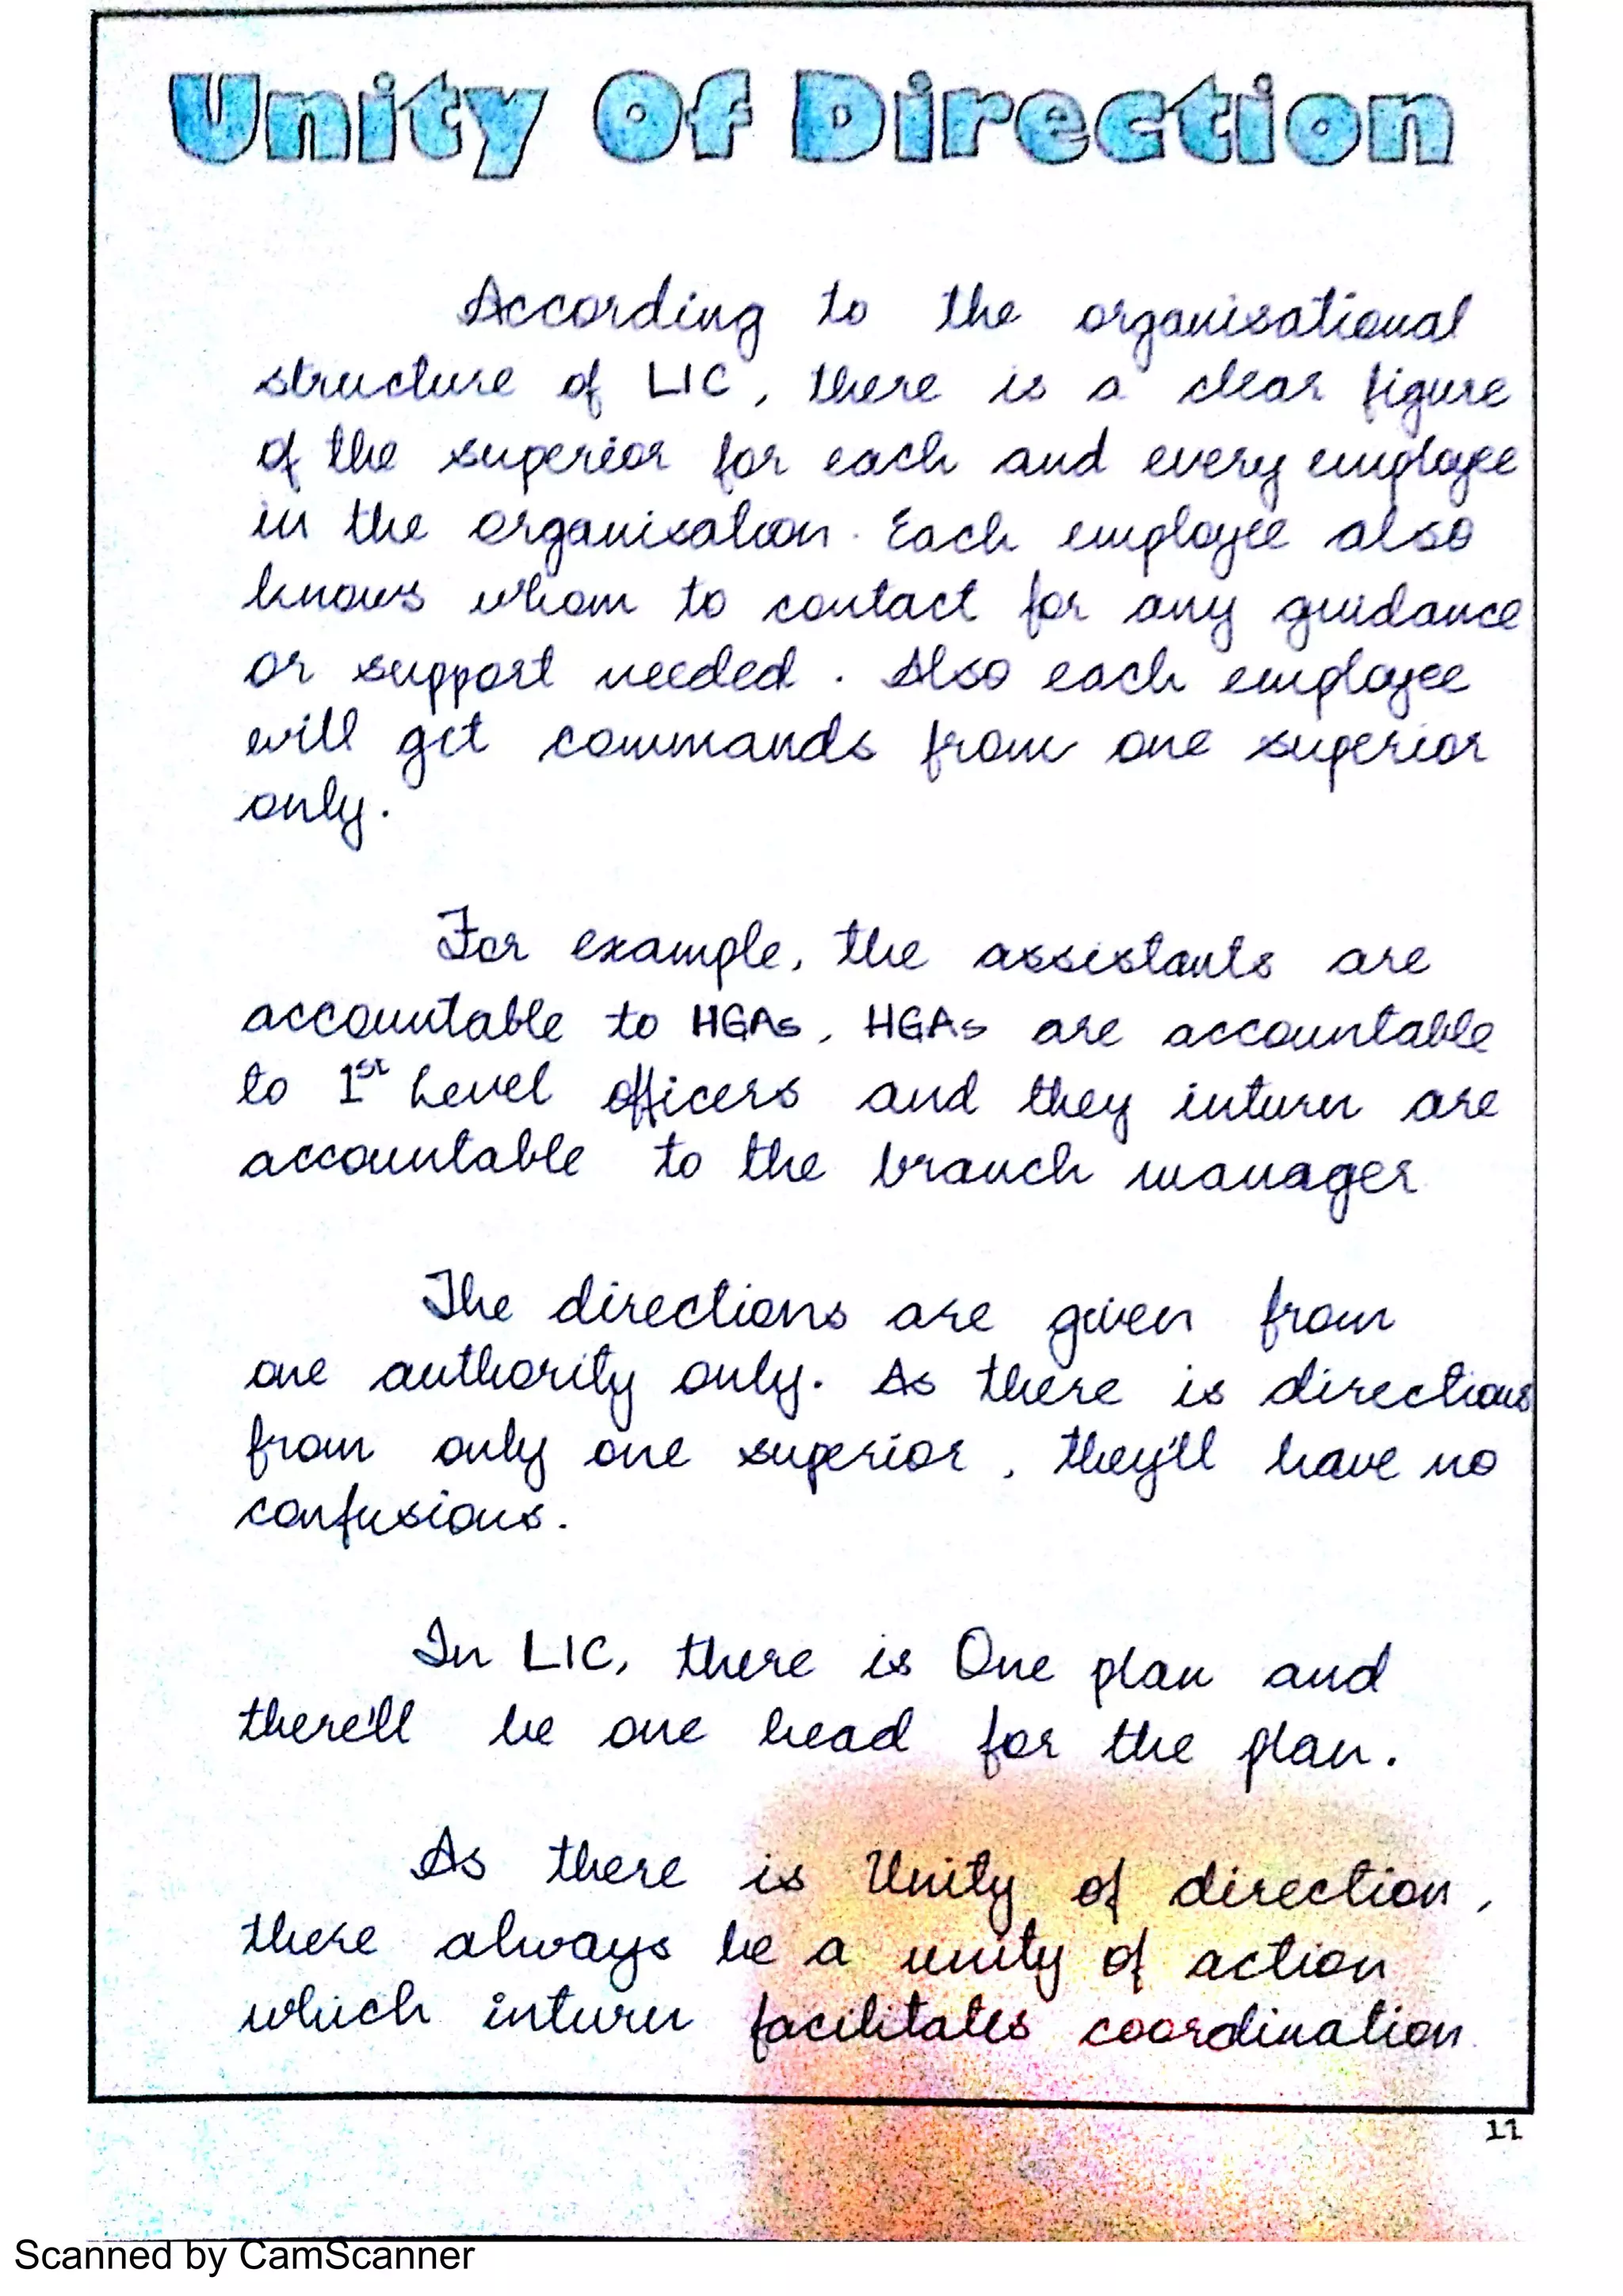 Unity Of Direction
According to the organisational
structure of LIC, there is a clear figure
of the superior for each and every employee
in the organisation. Each employee also
knows whom to contact for any guidance
or support needed. Also each employee
will get commands from one superior
only.
For example, the assistants are
accountable to HGAs, HGAs are accountable
to 1st Level officers and they inturn are
accountable to the branch manager
The directions are given from
one authority only. As there is directions
from only one superior, they'll have no
confusions.
In LIC, there is One plan and
there'll be one head for the plan.
As there is Unity of direction,
there always be a unity of action
which inturn facilitates coordination
11
Scanned by CamScanner